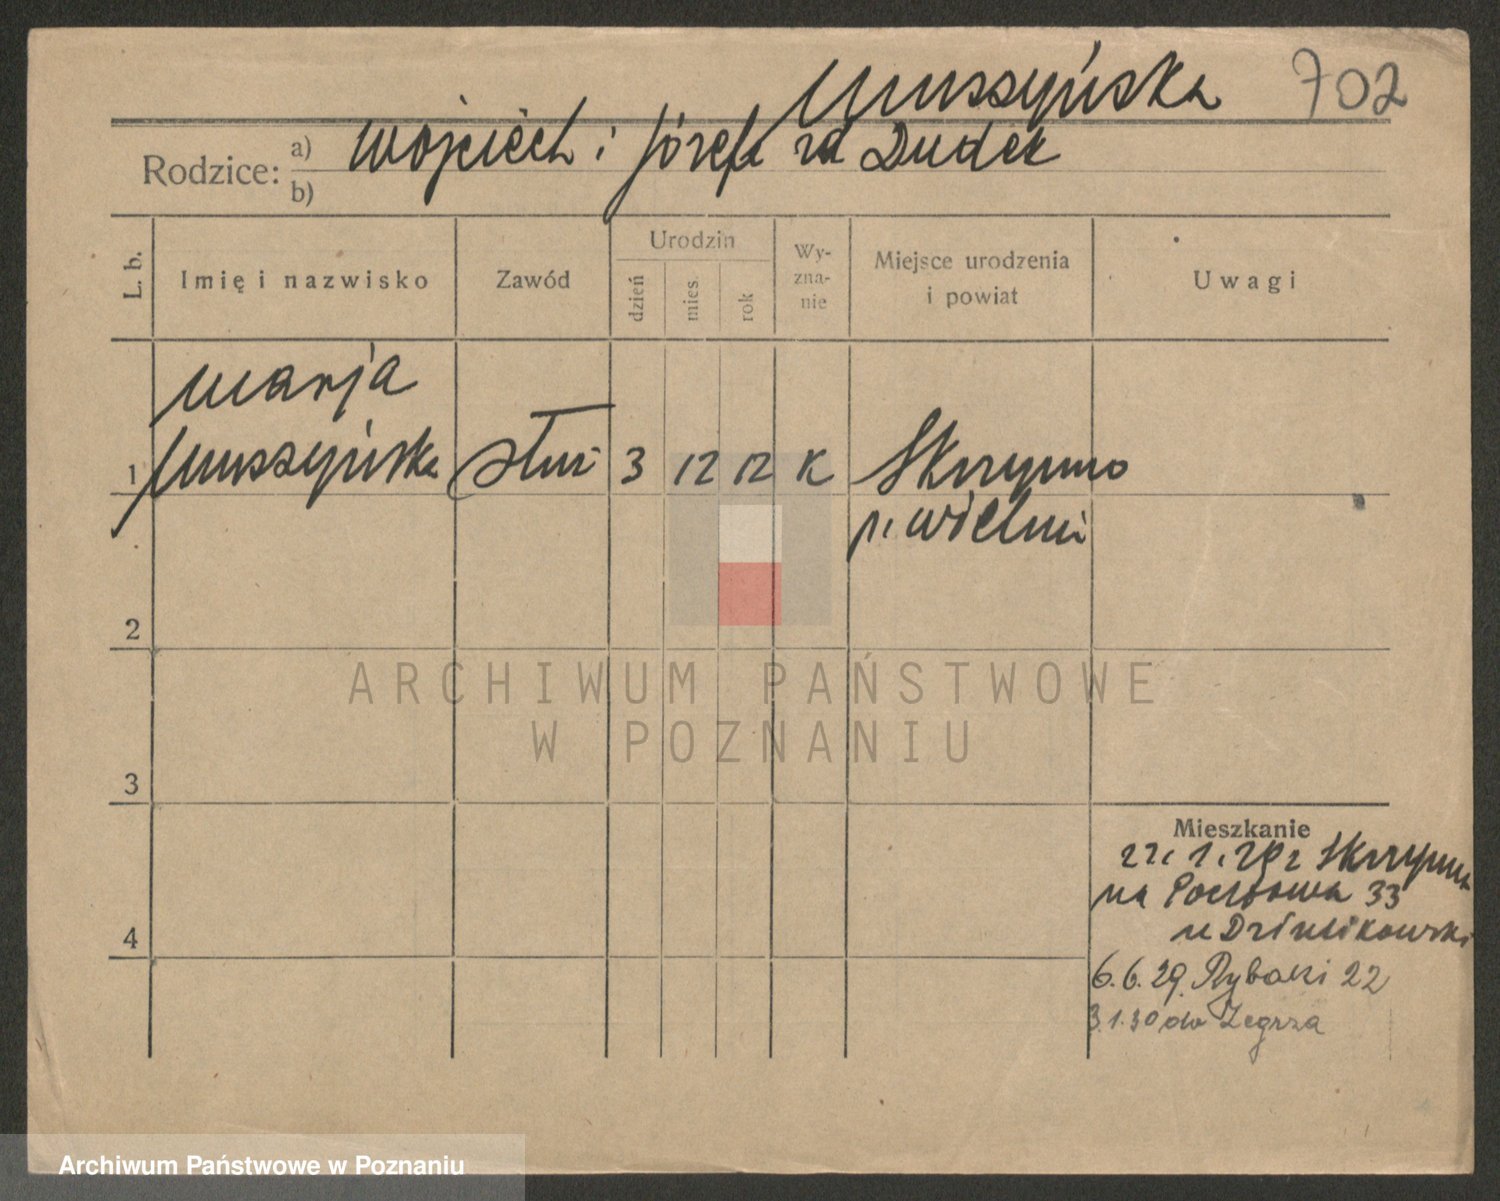 Muszyńska 702
Rodzice: a) Wojciech i Józefa zd Dudek
b)
L. b. Imię i nazwisko Zawód Urodzin dzień mies. rok Wy-zna-nie Miejsce urodzenia i powiat Uwagi
Marja
1 Muszyńska służ 3 12 12 K Skrzynno
p. Wieluń
2
ARCHIWUM PAŃSTWOWE
W POZNANIU
3
Mieszkanie
1. 29 z Skrzynna
na 33
u
4
6.6.29. Rybaki 22
3.1.30 do Zegrza
Archiwum Państwowe w Poznaniu